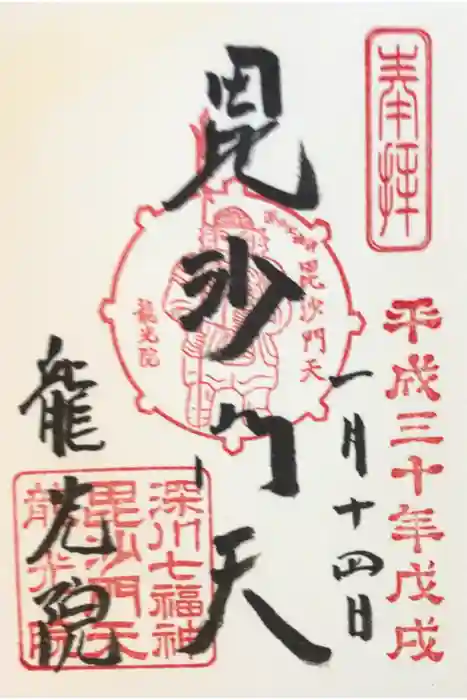 奉拝
平成三十年戊戌
一月十四日
毘沙門天
深川七福神
毘沙門天
龍光院
毘沙門天
龍光院
龍光院